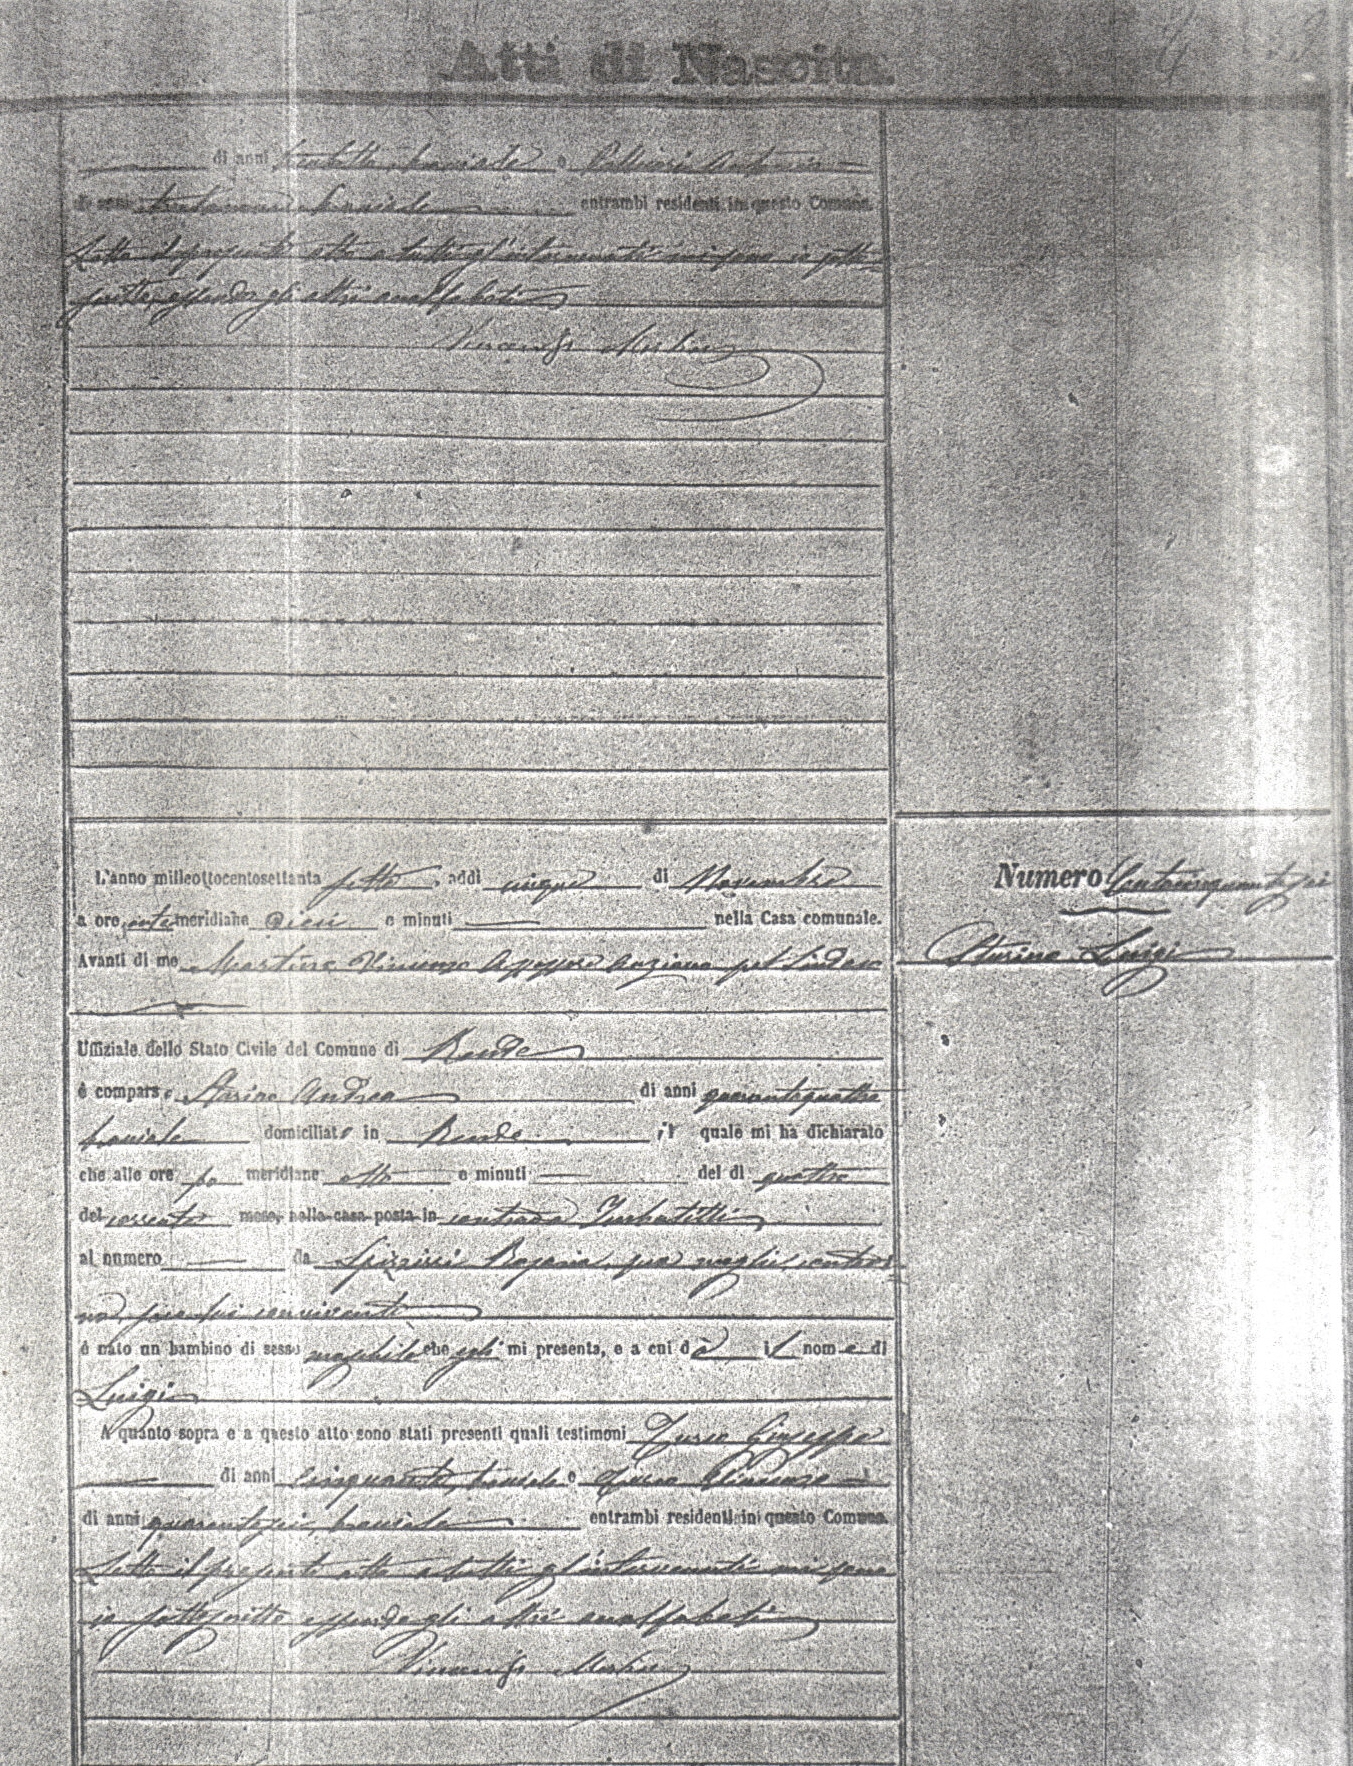 Atti di Nascita.
di anni trentotto, bracciale e Antonio
di anni bracciale entrambi residenti in questo Comune.
Letto il presente atto a tutti gl'intervenuti mi sono io sotto-
scritto, essendo gli altri analfabeti
Vincenzo Martino
L'anno milleottocentosettanta sette, addì cinque di Novembre
a ore antemeridiane dieci e minuti nella Casa comunale.
Avanti di me Martino Vincenzo Assessore Anziano pel Sindaco
Uffiziale dello Stato Civile del Comune di Rende
è comparso Andrea di anni quarantaquattro
bracciale domiciliato in Rende, il quale mi ha dichiarato
che alle ore pomeridiane otto e minuti del dì quattro
del corrente mese, nella casa posta in contrada
al numero da Spizzirri Rosaria, sua moglie, seco
lui convivente
è nato un bambino di sesso maschile che egli mi presenta, e a cui dà il nome di
Luigi
A quanto sopra e a questo atto sono stati presenti quali testimoni Giuseppe
di anni cinquanta, bracciale e
di anni quarantasei, bracciale entrambi residenti in questo Comune.
Letto il presente atto a tutti gl'intervenuti mi sono
io sottoscritto essendo gli altri analfabeti
Vincenzo Martino
Numero Centocinquantasei
Luigi